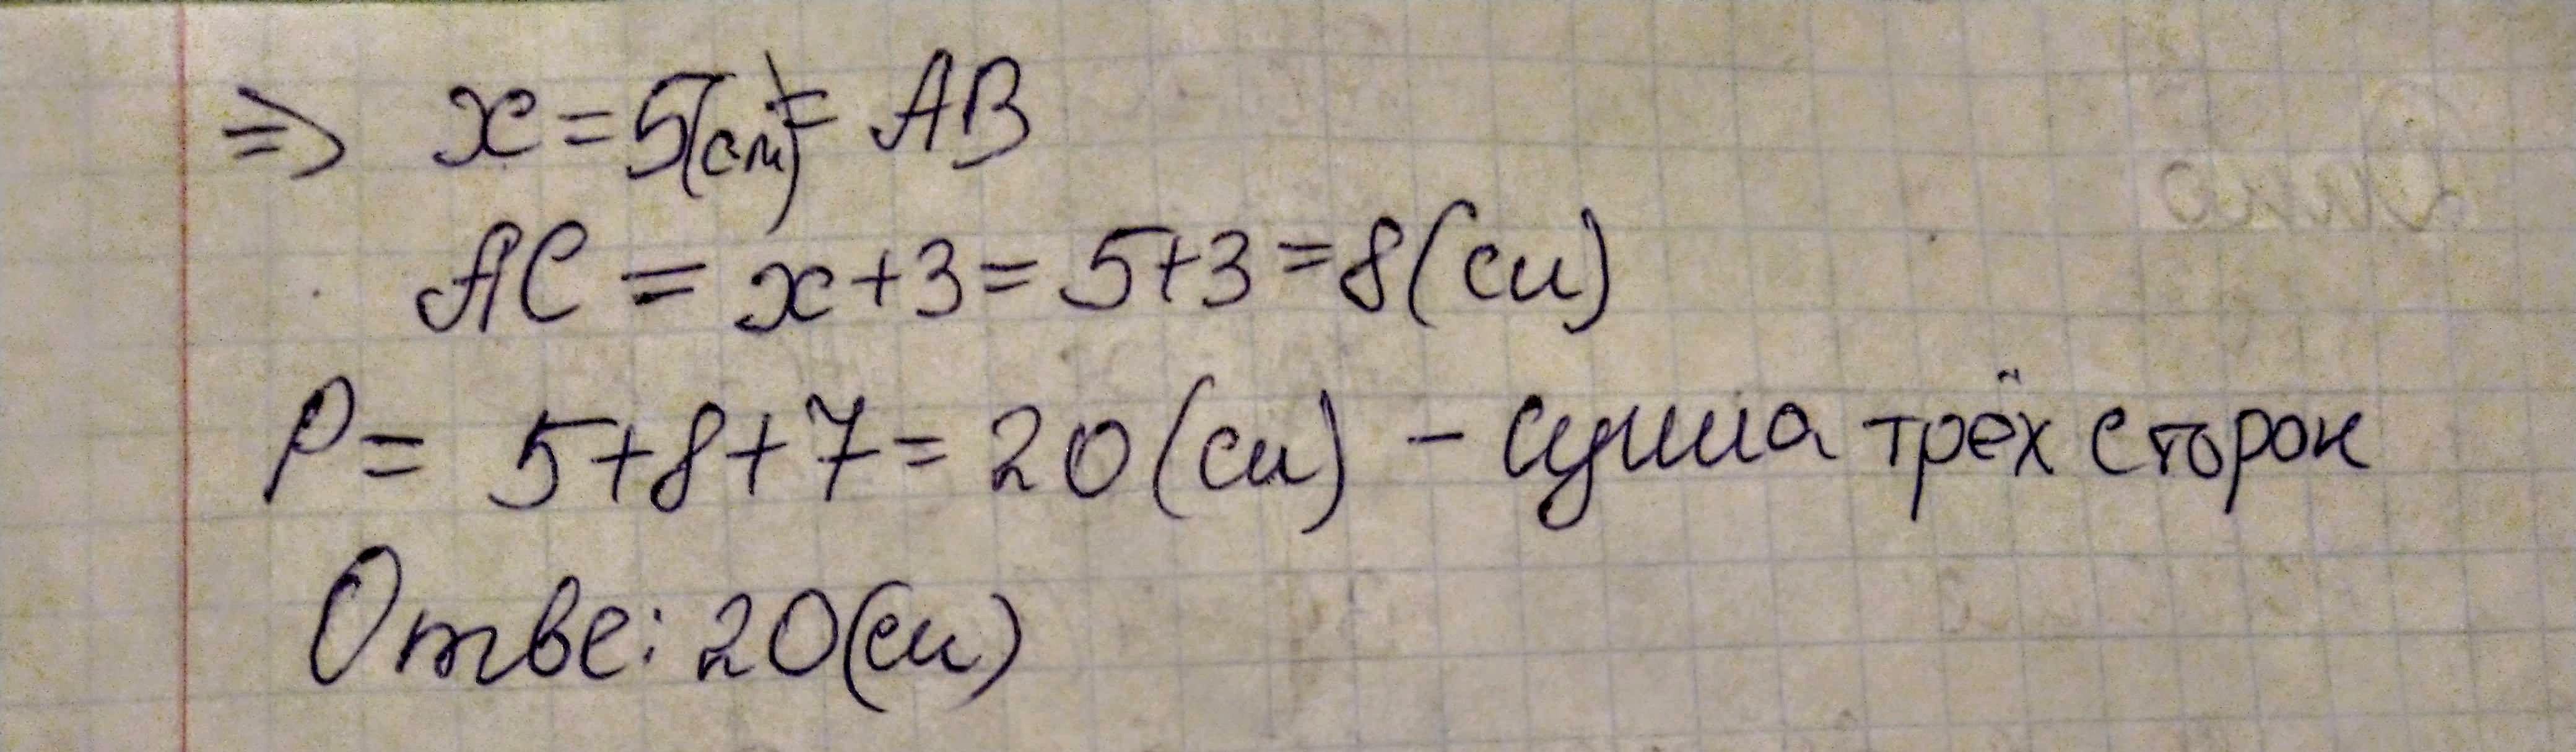 ⇒ x = 5(см) = AB
AC = x + 3 = 5 + 3 = 8 (см)
P = 5 + 8 + 7 = 20 (см) – сумма трёх сторон
Отве: 20 (см)